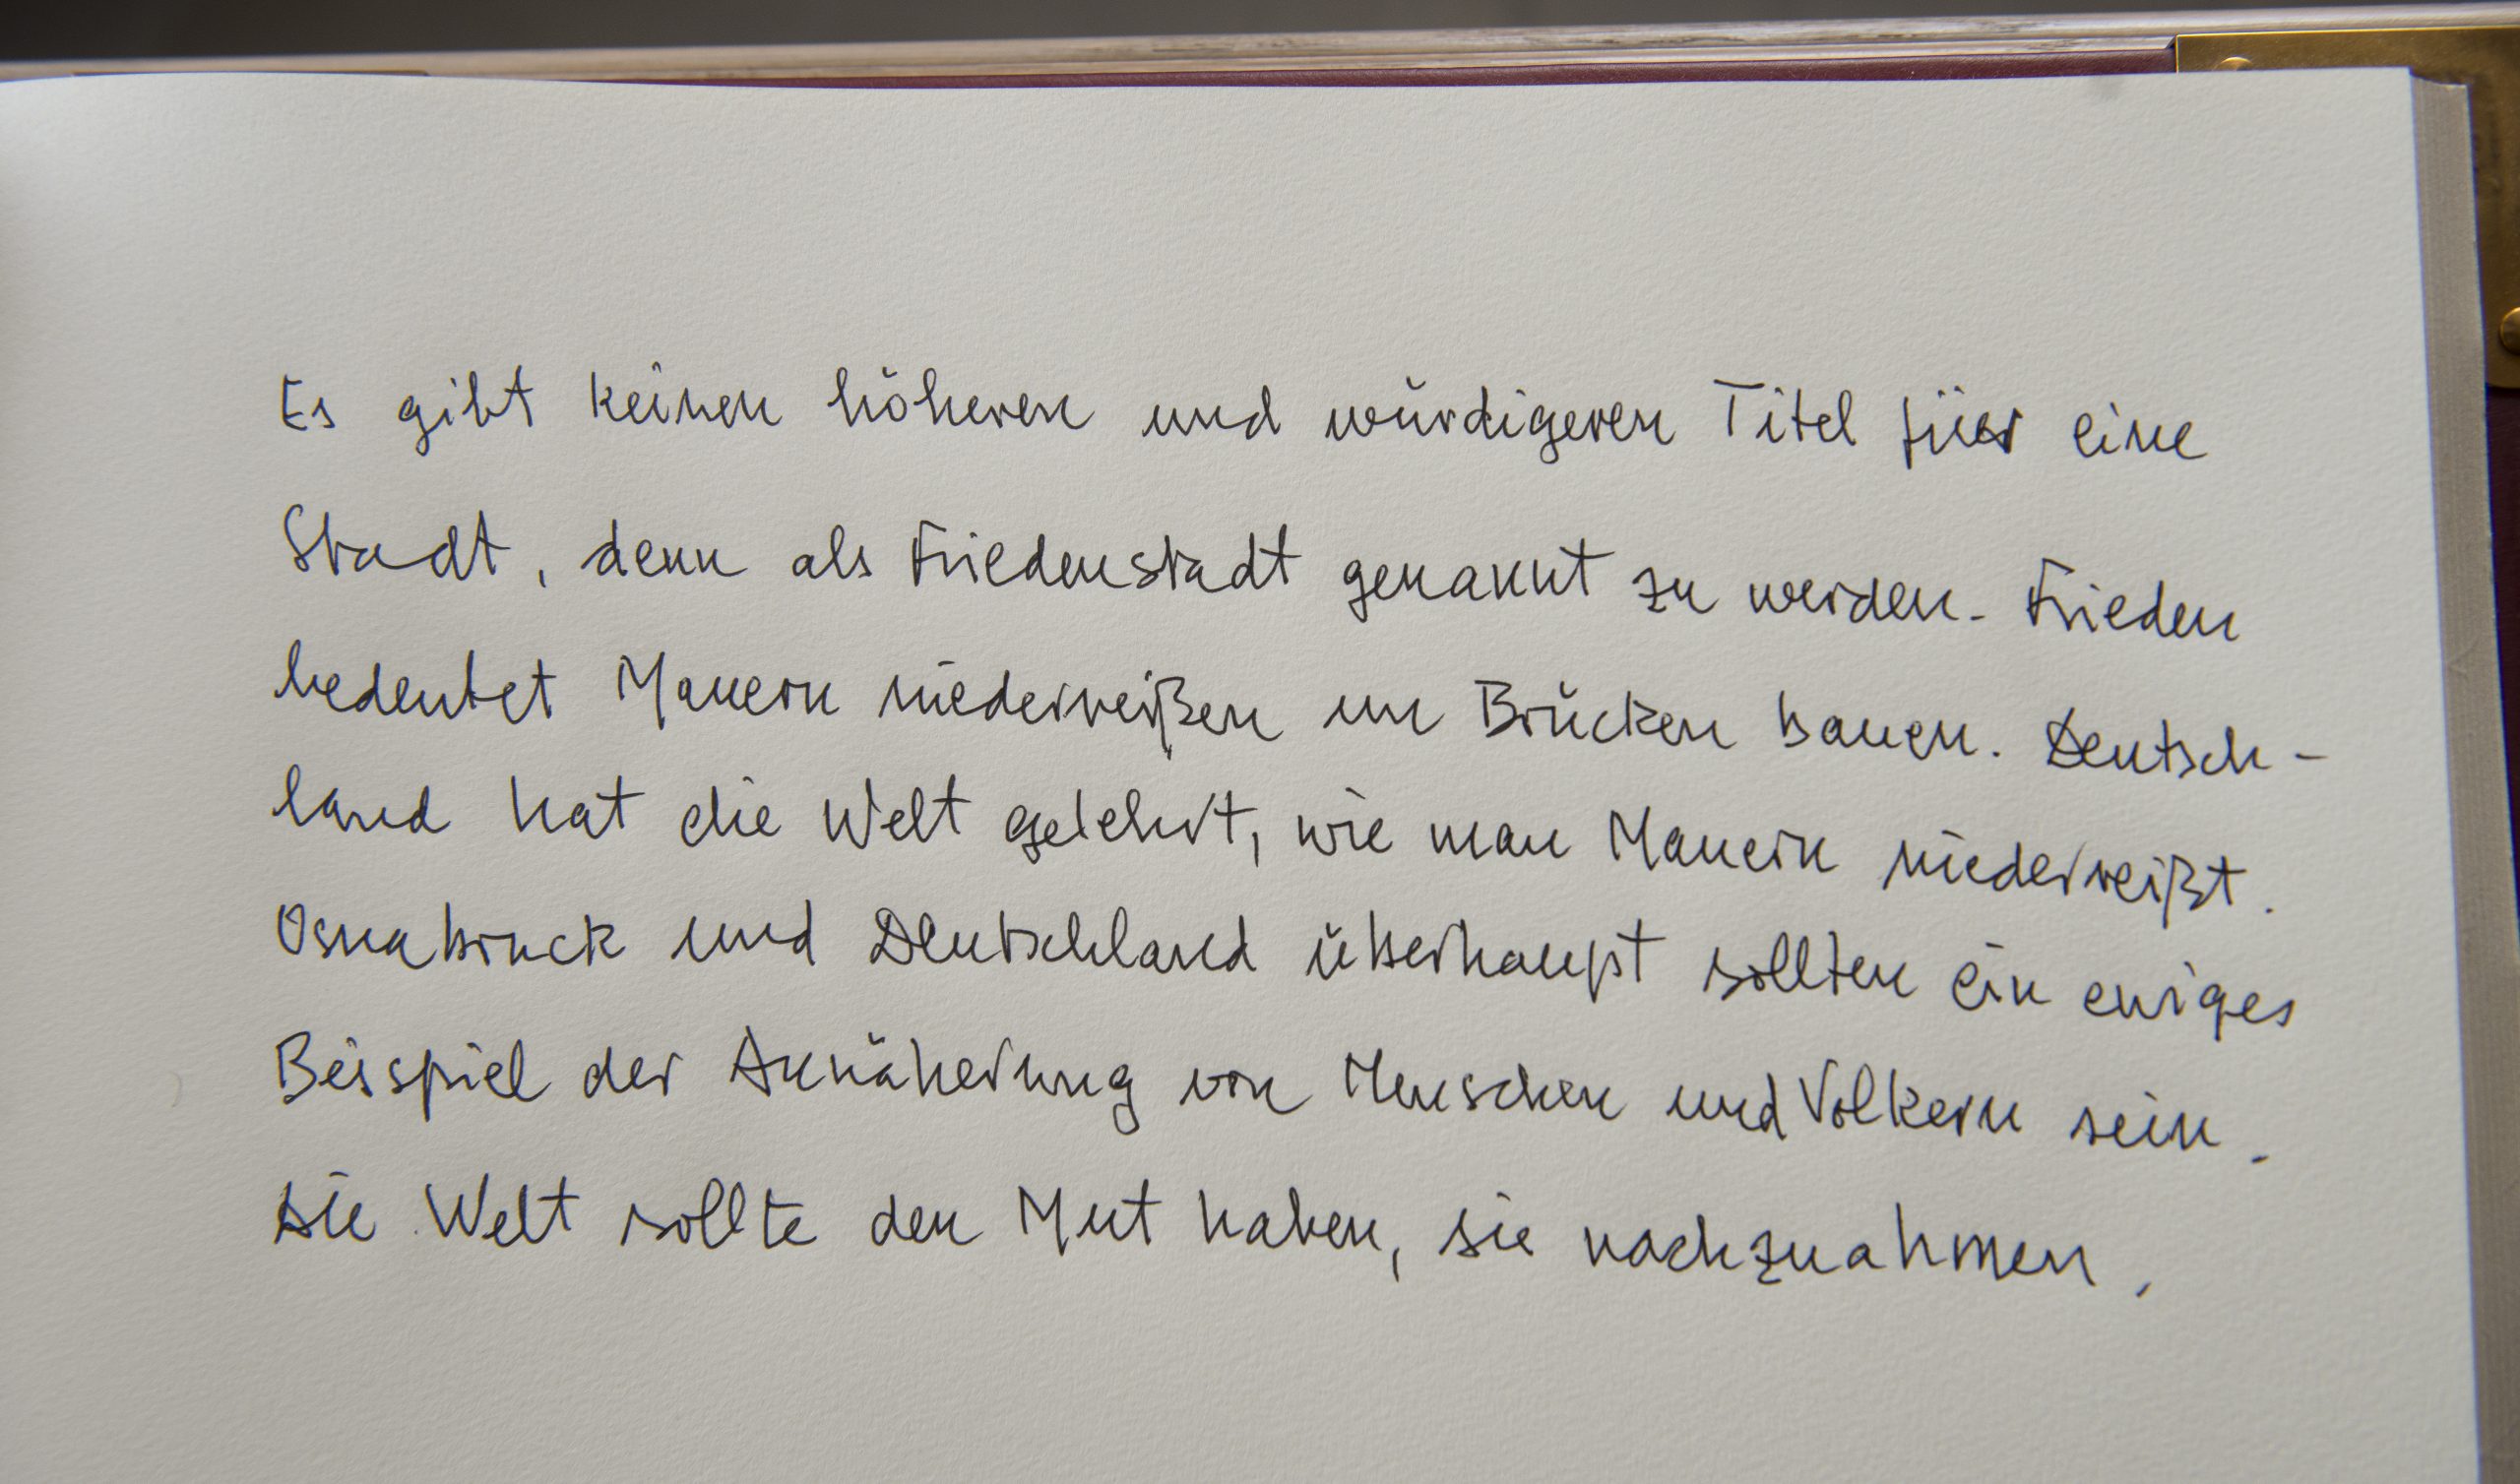 Es gibt keinen höheren und würdigeren Titel für eine
Stadt, denn als Friedenstadt genannt zu werden. Frieden
bedeutet Mauern niederreißen um Brücken bauen. Deutsch-
land hat die Welt gelehrt, wie man Mauern niederreißt.
Osnabruck und Deutschland überhaupt sollten ein ewiges
Beispiel der Annäherung von Menschen und Volkern sein.
Die Welt sollte den Mut haben, sie nachzuahmen.